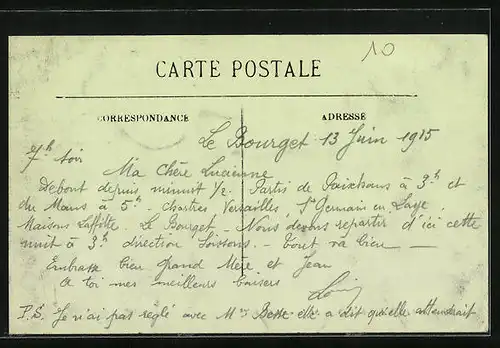 10
CARTE POSTALE
CORRESPONDANCE
ADRESSE
Le Bourget 13 Juin 1915
7h soir
Ma chère Lucienne
Debout depuis minuit 1/2 - Partis de Paixhans à 3h et
du Mans à 5h - Chartres Versailles, St Germain en Laye
Maisons Laffitte - Le Bourget - Nous devons repartir d'ici cette
nuit à 3h direction Soissons. - Tout va bien -
Embrasse bien Grand Mère et Jean
à toi mes meilleurs baisers
P.S. Je n'ai pas réglé avec Me elle a dit qu'elle attendrait